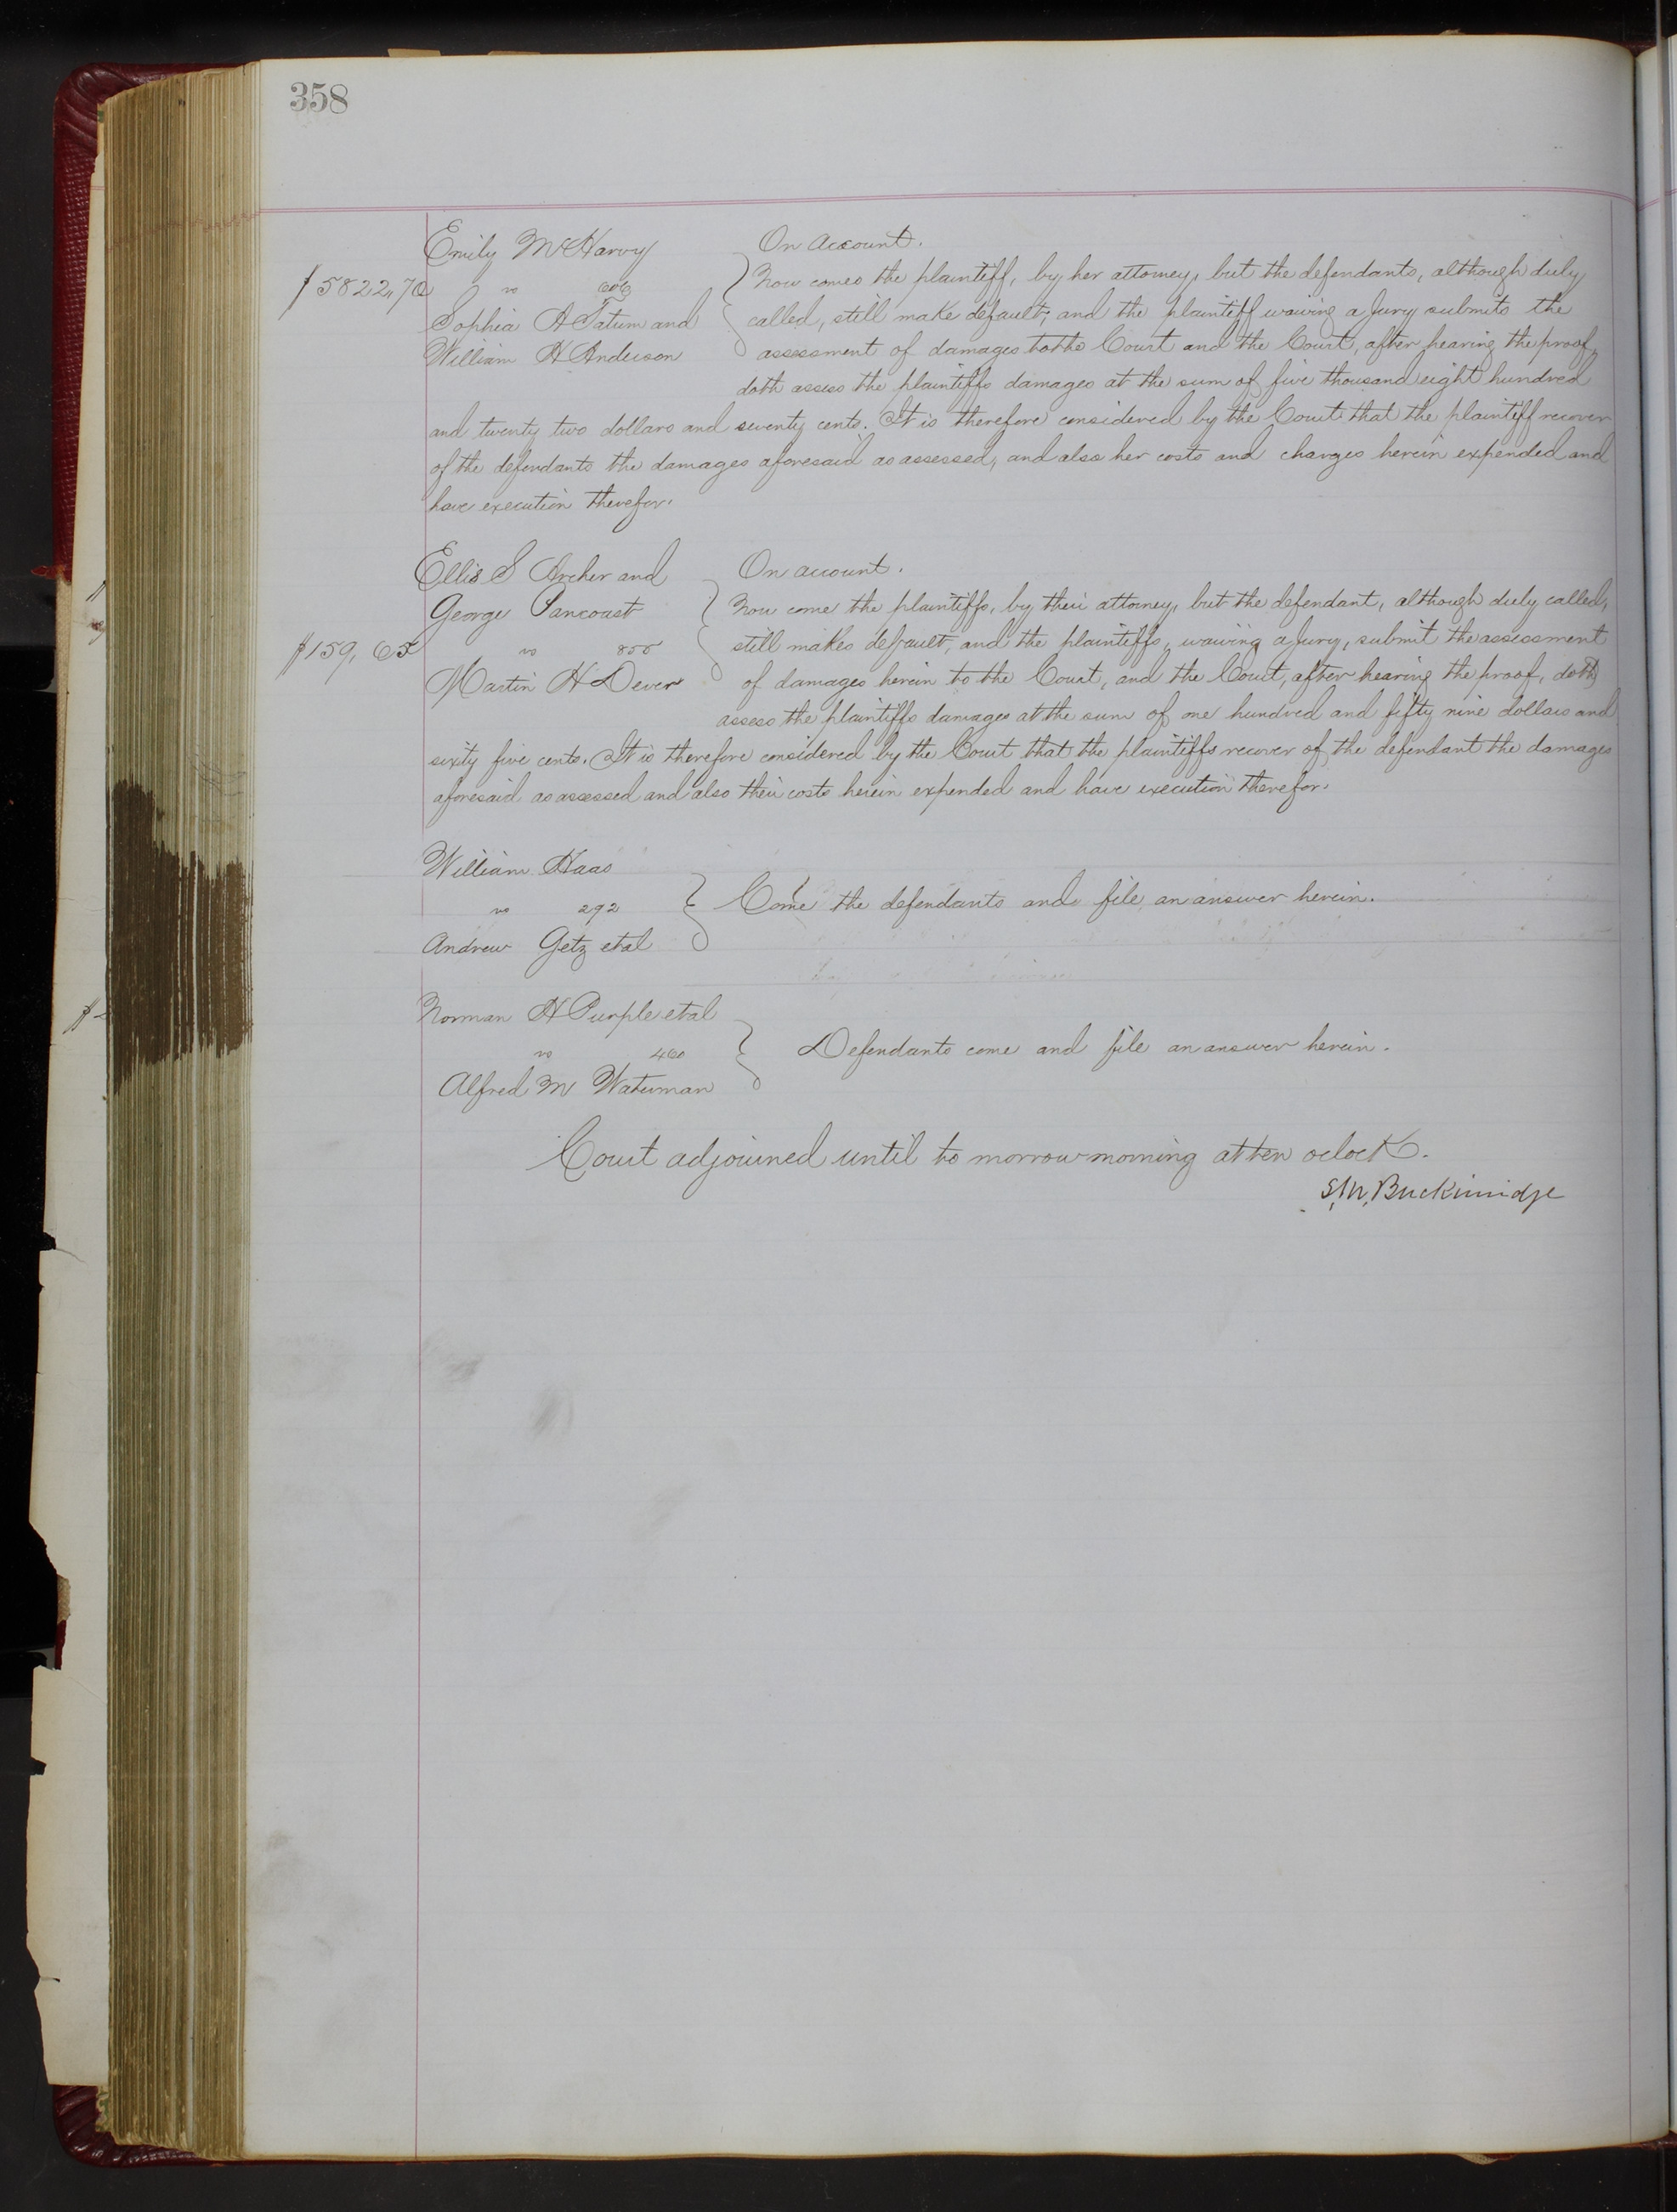 358
Emily McHarvy On Account.
$5822,70 vs 606 Now comes the plaintiff, by her attorney, but the defendants, although duly
Sophia A Tatum and called, still make default, and the plaintiff waiving a Jury submits the
William H Anderson assessment of damages to the Court and the Court, after hearing the proof,
doth assess the plaintiffs damages at the sum of five thousand eight hundred
and twenty two dollars and seventy cents. It is therefore considered by the Court that the plaintiff recover
of the defendants the damages aforesaid as assessed, and also her costs and charges herein expended and
have execution therefor.
Ellis S Archer and On account.
George Pancoast Now come the plaintiffs, by their attorney, but the defendant, although duly called,
$159,65 vs 855 still makes default, and the plaintiffs, waiving a Jury, submit the assessment
Martin H Dever of damages herein to the Court, and the Court, after hearing the proof, doth
assess the plaintiffs damages at the sum of one hundred and fifty nine dollars and
sixty five cents. It is therefore considered by the Court that the plaintiffs recover of the defendant the damages
aforesaid as assessed and also their costs herein expended and have execution therefor.
William Haas
vs 292 Come the defendants and file an answer herein.
Andrew Getz et al
Norman H Purple et al
vs 460 Defendants come and file an answer herein.
Alfred M Waterman
Court adjourned until to morrow morning at ten oclock.
S. M. Buckinridge